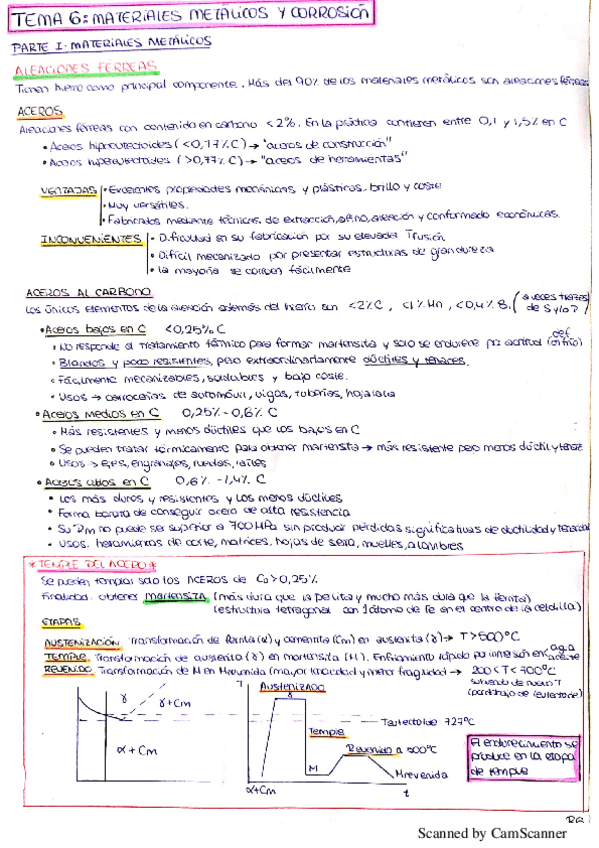 TEMA 6: MATERIALES METÁLICOS Y CORROSIÓN
PARTE I: MATERIALES METÁLICOS
ALEACIONES FÉRREAS
Tienen hierro como principal componente. Más del 90% de los materiales metálicos son aleaciones férreas
ACEROS
Aleaciones férreas con contenido en carbono < 2%. En la práctica contienen entre 0,1 y 1,5% en C
• Aceros hipoeutectoides (< 0,77% C) → "aceros de construcción"
• Aceros hipereutectoides (> 0,77% C) → "aceros de herramientas"
VENTAJAS • Excelentes propiedades mecánicas y plásticas, brillo y coste
• Muy versátiles.
• Fabricados mediante técnicas de extracción, afino, aleación y conformado económicas.
INCONVENIENTES • Dificultad en su fabricación por su elevada Tfusión
• Difícil mecanizado por presentar estructuras de gran dureza
• la mayoría se corroen fácilmente
ACEROS AL CARBONO
Los únicos elementos de la aleación además del hierro son < 2% C, < 1% Mn, < 0,4% Si (a veces trazas de S y/o P)
• Aceros bajos en C < 0,25% C
• No responde al tratamiento térmico para formar martensita y solo se endurece por acritud (def en frío)
• Blandos y poco resistentes, pero extraordinariamente dúctiles y tenaces.
• Fácilmente mecanizables, soldables y bajo coste.
• Usos → carrocerías de automóvil, vigas, tuberías, hojalata
• Aceros medios en C 0,25% - 0,6% C
• Más resistentes y menos dúctiles que los bajos en C
• Se pueden tratar térmicamente para obtener martensita → más resistente pero menos dúctil y tenaz
• Usos → Ejes, engranajes, ruedas, raíles
• Aceros altos en C 0,6% - 1,4% C
• Los más duros y resistentes y los menos dúctiles
• Forma barata de conseguir acero de alta resistencia
• Su no puede ser superior a 700 MPa sin producir pérdidas significativas de ductilidad y tenacidad
• Usos: herramientas de corte, matrices, hojas de sierra, muelles, alambres
* TEMPLE DEL ACERO *
Se pueden templar solo los ACEROS de C > 0,25%
Finalidad: obtener martensita (más dura que la perlita y mucho más dura que la ferrita)
(estructura tetragonal con 1 átomo de Fe en el centro de la celdilla)
ETAPAS
AUSTENIZACIÓN Transformación de ferrita (α) y cementita (Cm) en austenita (γ) → T > 500ºC
TEMPLE. Transformación de austenita (γ) en martensita (M). Enfriamiento rápido por inmersión en agua aceite
REVENIDO Transformación de M en Mrevenida (mayor tenacidad y menor fragilidad → 200 < T < 700ºC
subiendo de nuevo T
(por debajo de eutectoide)
T Austenizado
γ
γ
γ + Cm
Teutectoide 727ºC
Temple
Revenido a 500ºC
α + Cm
M
Mrevenida
α + Cm
t
El endurecimiento se
produce en la etapa
de temple
Scanned by CamScanner